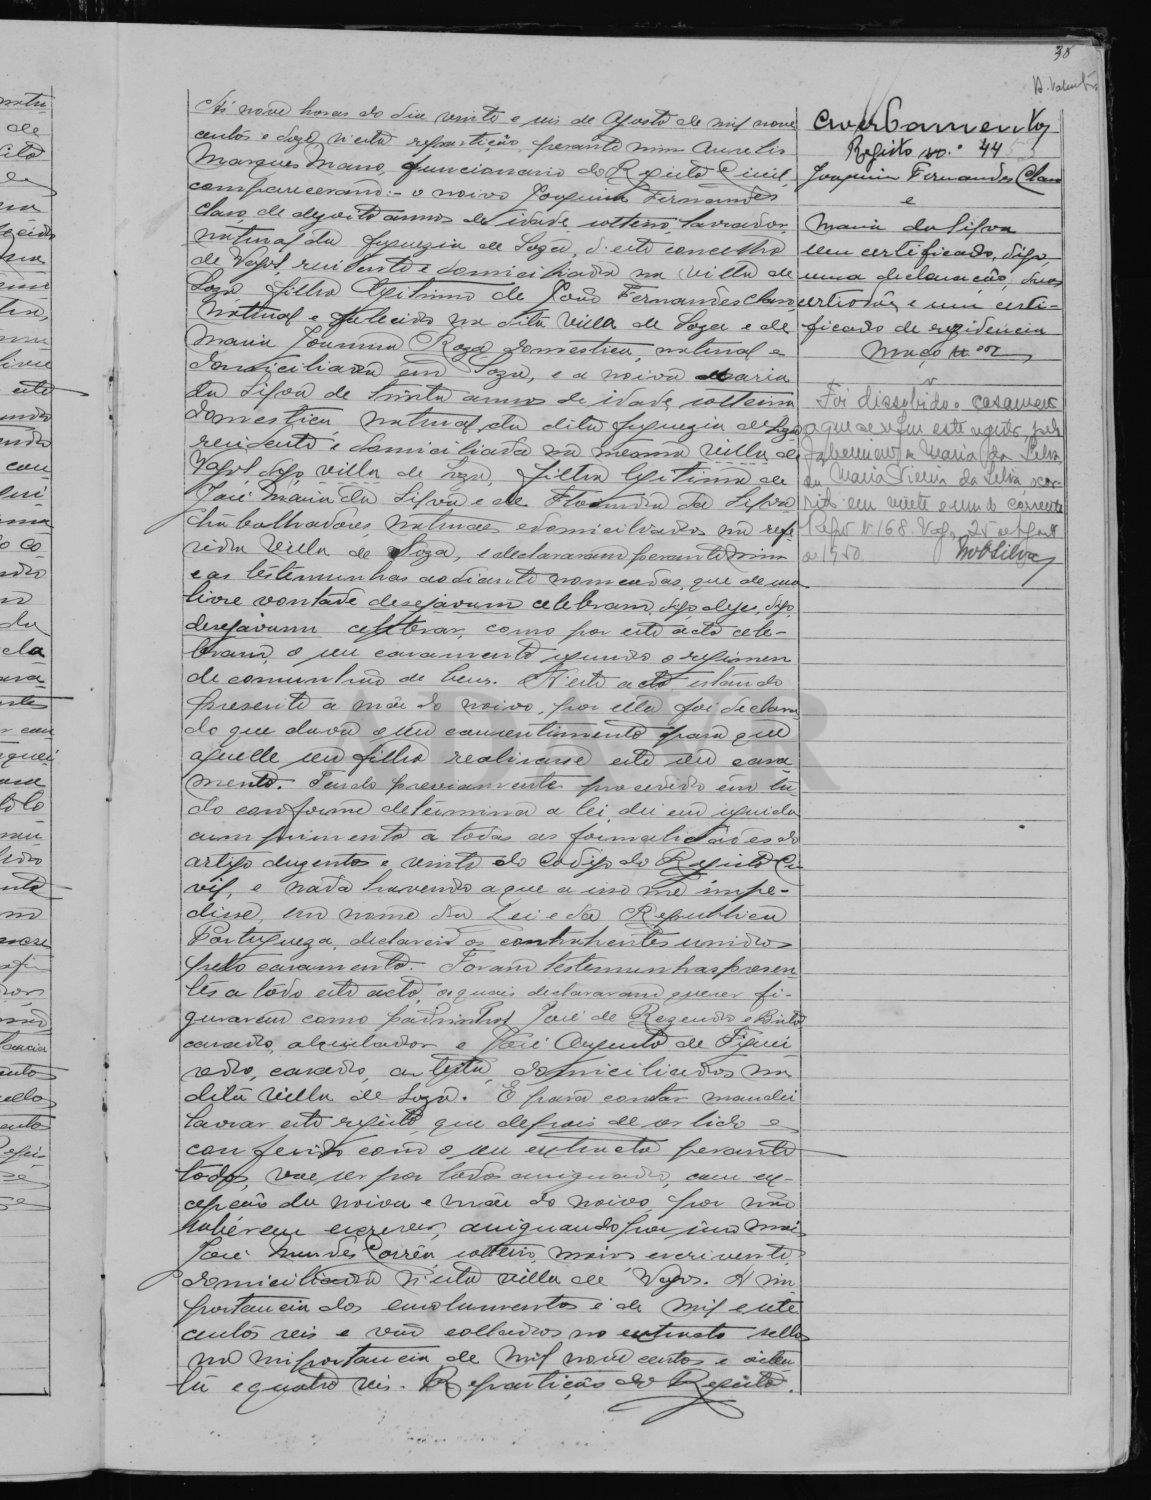 38
Ás nove horas do dia vinte e seis de Agosto de mil nove
centos e doze, n'esta repartição, perante mim Aurelio
Marques Mano, funcionario do Registo Civil,
compareceram:- o noivo Joaquim Fernandes
Claro, de dezoito annos de idade, solteiro, lavrador,
natural da freguezia de Soza, d'este concelho
de Vagos, residente e domiciliado na villa de
Soza, filho legitimo de João Fernandes Claro,
natural e falecido na dita villa de Soza e de
Maria Joanna Roza, domestica, natural e
domiciliada em Soza, e a noiva Maria
da Silva de trinta annos de idade, solteira
domestica, natural da dita freguezia de Soza
residente e domiciliada na mesma villa de
Vagos, digo, villa de Soza, filha legitima de
José Maria da Silva e de da Silva
trabalhadores, naturaes e domiciliados na refe-
rida villa de Soza, e declararam perante mim
e as testemunhas ao diante nomeadas, que de sua
livre vontade desejavam celebram, digo digo,
desejavam celebrar, como por este acto cele-
bram, o seu casamento segundo o regimen
de comunhão de bens. N'este acto estando
presente a mãe do noivo, por ella foi declara-
do que dava o seu consentimento para que
aquelle seu filho realisasse este seu casa
mento. Tendo previamente procedido em tu-
do conforme determina a lei, dei em seguida
cumprimento a todas as formalidades do
artigo duzentos e vinte do Codigo do Registo Ci-
vil, e nada havendo a que a isso me impe-
disse, em nome da Lei e da Republica
Portugueza, declarei os contrahentes unidos
pelo casamento. Foram testemunhas presen-
tes a todo este acto, os quais declararam querer fi-
gurarem como padrinhos José de Rezende e Brito
casado, alquilador e José Augusto de Figuei
redo, casado, artista, domiciliados na
dita villa de Soza. E para constar mandei
lavrar este registo, que depois de ser lido e
conferido com o seu extracto perante
todos, vae ser por todos assignado, com ex-
cepção da noiva e mãe do noivo, por não
saberem escrever, assignando por isso mais
José Mendes Corrêa, solteiro, maior, escrivente,
domiciliado n'esta villa de Vagos. A im
portancia dos emolumentos é de mil e sete
centos reis e vão collados no extracto sellos
na importancia de mil nove centos e oiten
ta e quatro reis. Repartição do Registo.
Averbamentos
Registo no.º 44
Joaquim Fernandes Claro
e
Maria da Silva
um certificado, digo,
uma declaração, duas
certidões e um certi-
ficado de rezidencia
Maço
Foi dissolvido o casamento
a que se refere este registo, pelo
falecimento de Maria da Silva
ou Maria Vieira da Silva ocor-
rido em vinte e um do corrente
Registo nº 168. Vagos, 25 de Agosto
de 1950.